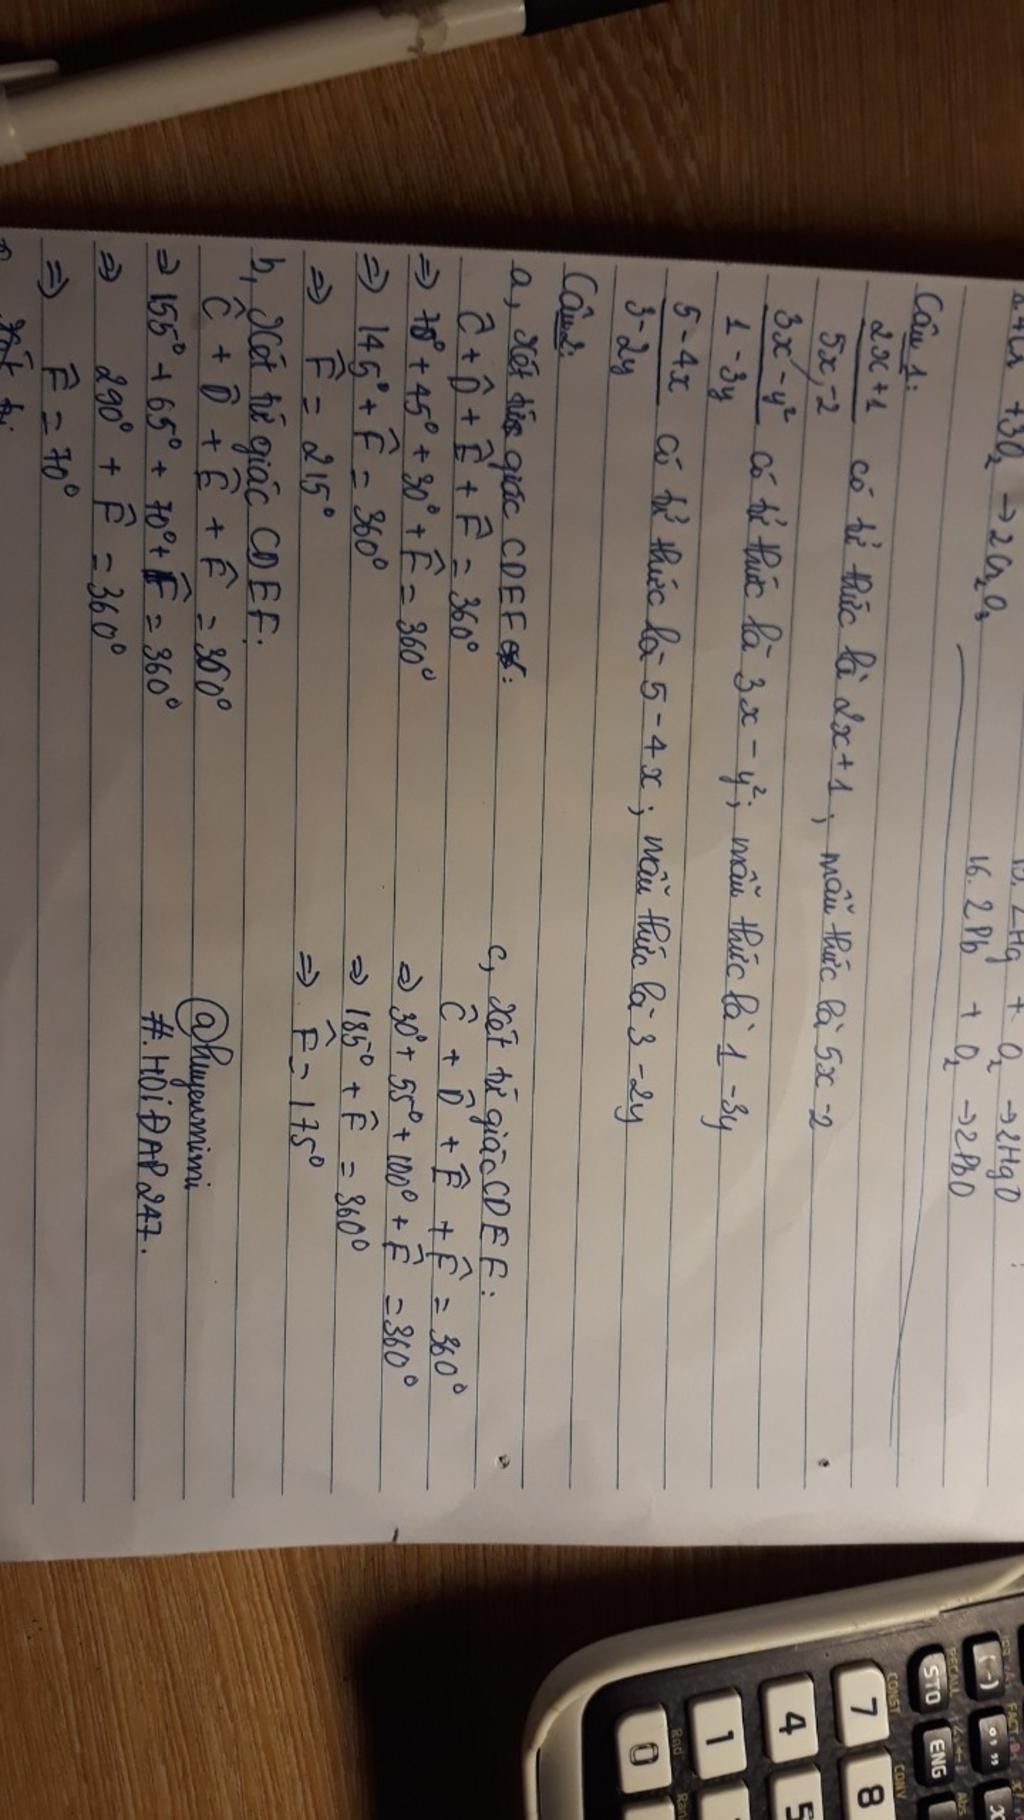 + 3O₂ → 2Cr₂O₃
2Hg + O₂ → 2HgO
16. 2Pb + O₂ → 2PbO
Câu 1:
2x+1
5x-2
có tử thức là 2x+1; mẫu thức là 5x-2
3x-y²
1-3y
có tử thức là 3x-y²; mẫu thức là 1-3y
5-4x
3-2y
có tử thức là 5-4x; mẫu thức là 3-2y
Câu 2:
a, Xét tứ giác CDEF:
Ĉ + D̂ + Ê + F̂ = 360°
⇒ 70° + 45° + 30° + F̂ = 360°
⇒ 145° + F̂ = 360°
⇒ F̂ = 215°
b, Xét tứ giác CDEF:
Ĉ + D̂ + Ê + F̂ = 360°
⇒ 155° + 65° + 70° + F̂ = 360°
⇒ 290° + F̂ = 360°
⇒ F̂ = 70°
c, Xét tứ giác CDEF:
Ĉ + D̂ + Ê + F̂ = 360°
⇒ 30° + 55° + 100° + F̂ = 360°
⇒ 185° + F̂ = 360°
⇒ F̂ = 175°
@huyenmimi
#.HOIĐAP247.
RECALL
STO
ENG
(-)
°,,,
FACT
CONST
CONV
7
8
4
5
1
0
Rnd
Ran